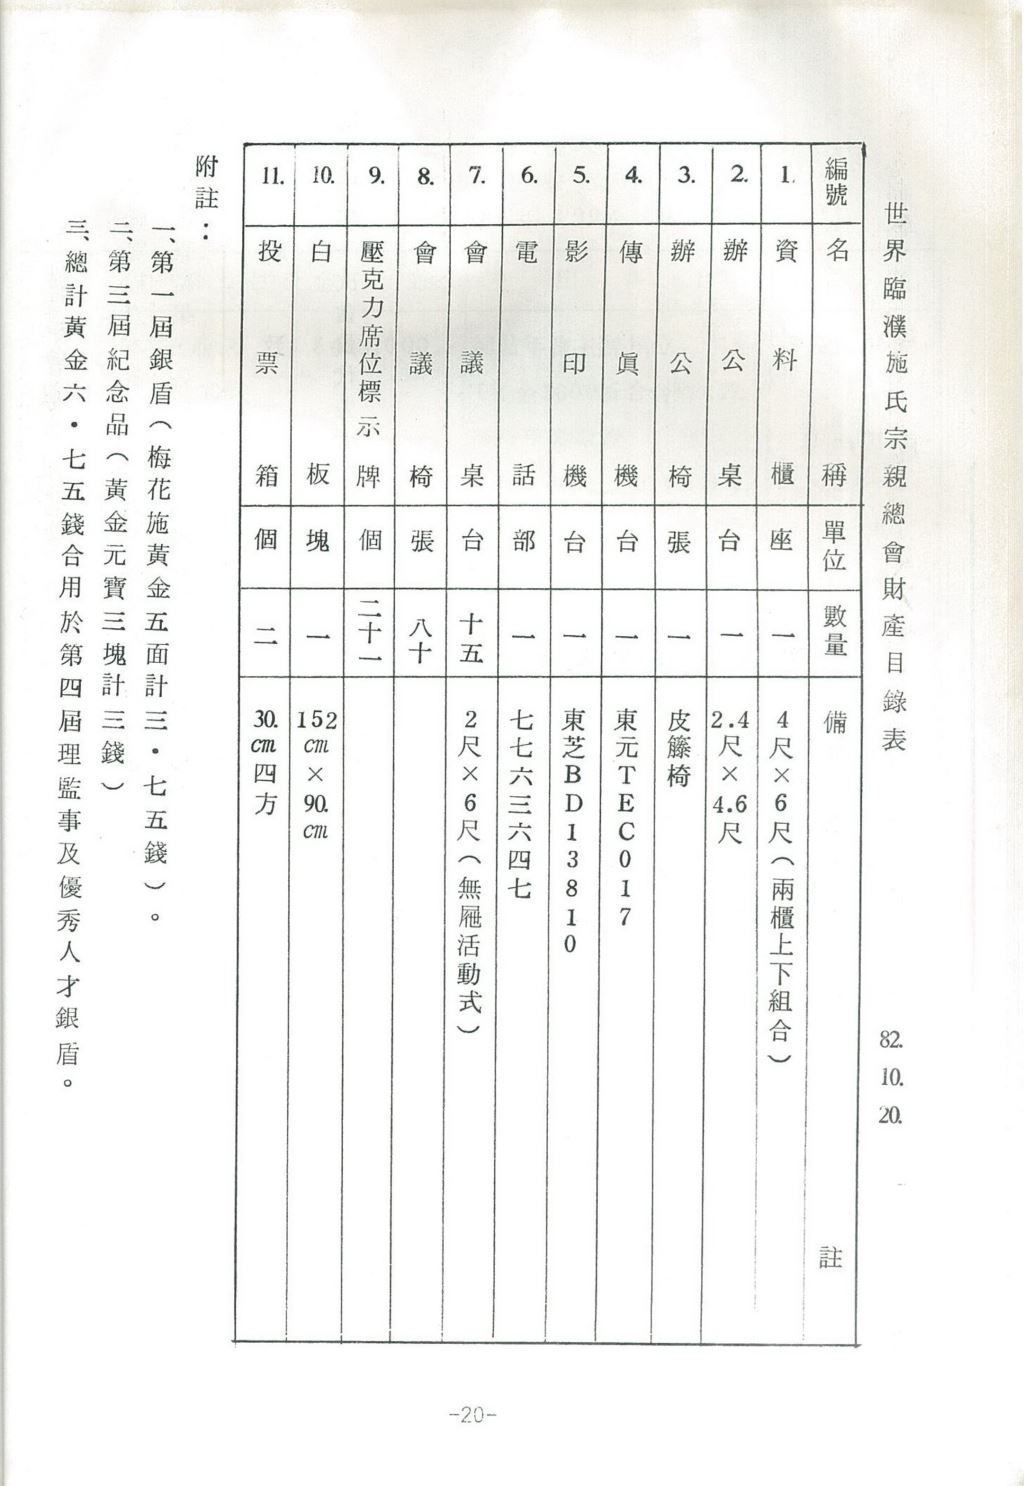 世界臨濮施氏宗親總會財產目錄表
82. 10. 20.
編號 名稱 單位 數量 備註
1. 資料櫃 座 一 4尺×6尺(兩櫃上下組合)
2. 辦公桌 台 一 2.4尺×4.6尺
3. 辦公椅 張 一 皮籐椅
4. 傳眞機 台 一 東元TEC017
5. 影印機 台 一 東芝BD13810
6. 電話 部 一 七七六三六四七
7. 會議桌 台 十五 2尺×6尺(無屜活動式)
8. 會議椅 張 八十
9. 壓克力席位標示牌 個 二十一
10. 白板 塊 一 152cm×90.cm
11. 投票箱 個 二 30.cm四方
附註：
一、第一屆銀盾(梅花施黃金五面計三・七五錢)。
二、第三屆紀念品(黃金元寶三塊計三錢)
三、總計黃金六・七五錢合用於第四屆理監事及優秀人才銀盾。
-20-